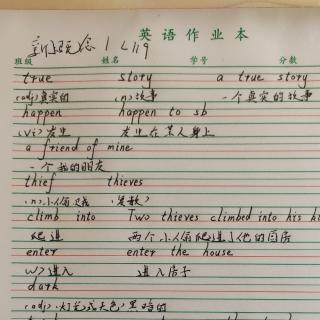 英语作业本
新概念1 L119
班级 姓名 学号 分数
true story a true story
(adj)真实的 (n)故事 一个真实的故事
happen happen to sb
(vi)发生 发生在某人身上
a friend of mine
一个我的朋友
thief thieves
(n)小偷 (复数)
climb into Two thieves climbed into his
爬进 两个小偷爬进了他的厨房
enter enter the house
(v)进入 进入房子
dark
(adj)灯光或天色，黑暗的